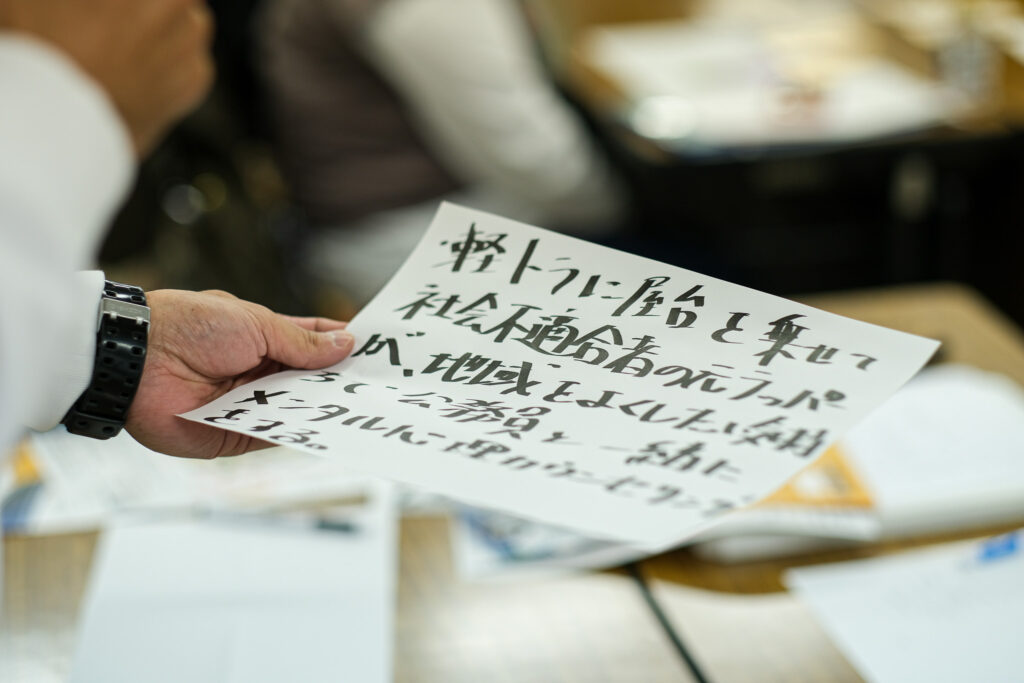 ・軽トラに屋台を乗せて
社会不適合者の元ラッパー
が、地域をよくしたい気持
ちで公務員と一緒に
メンタル心理カウンセリング
をする。